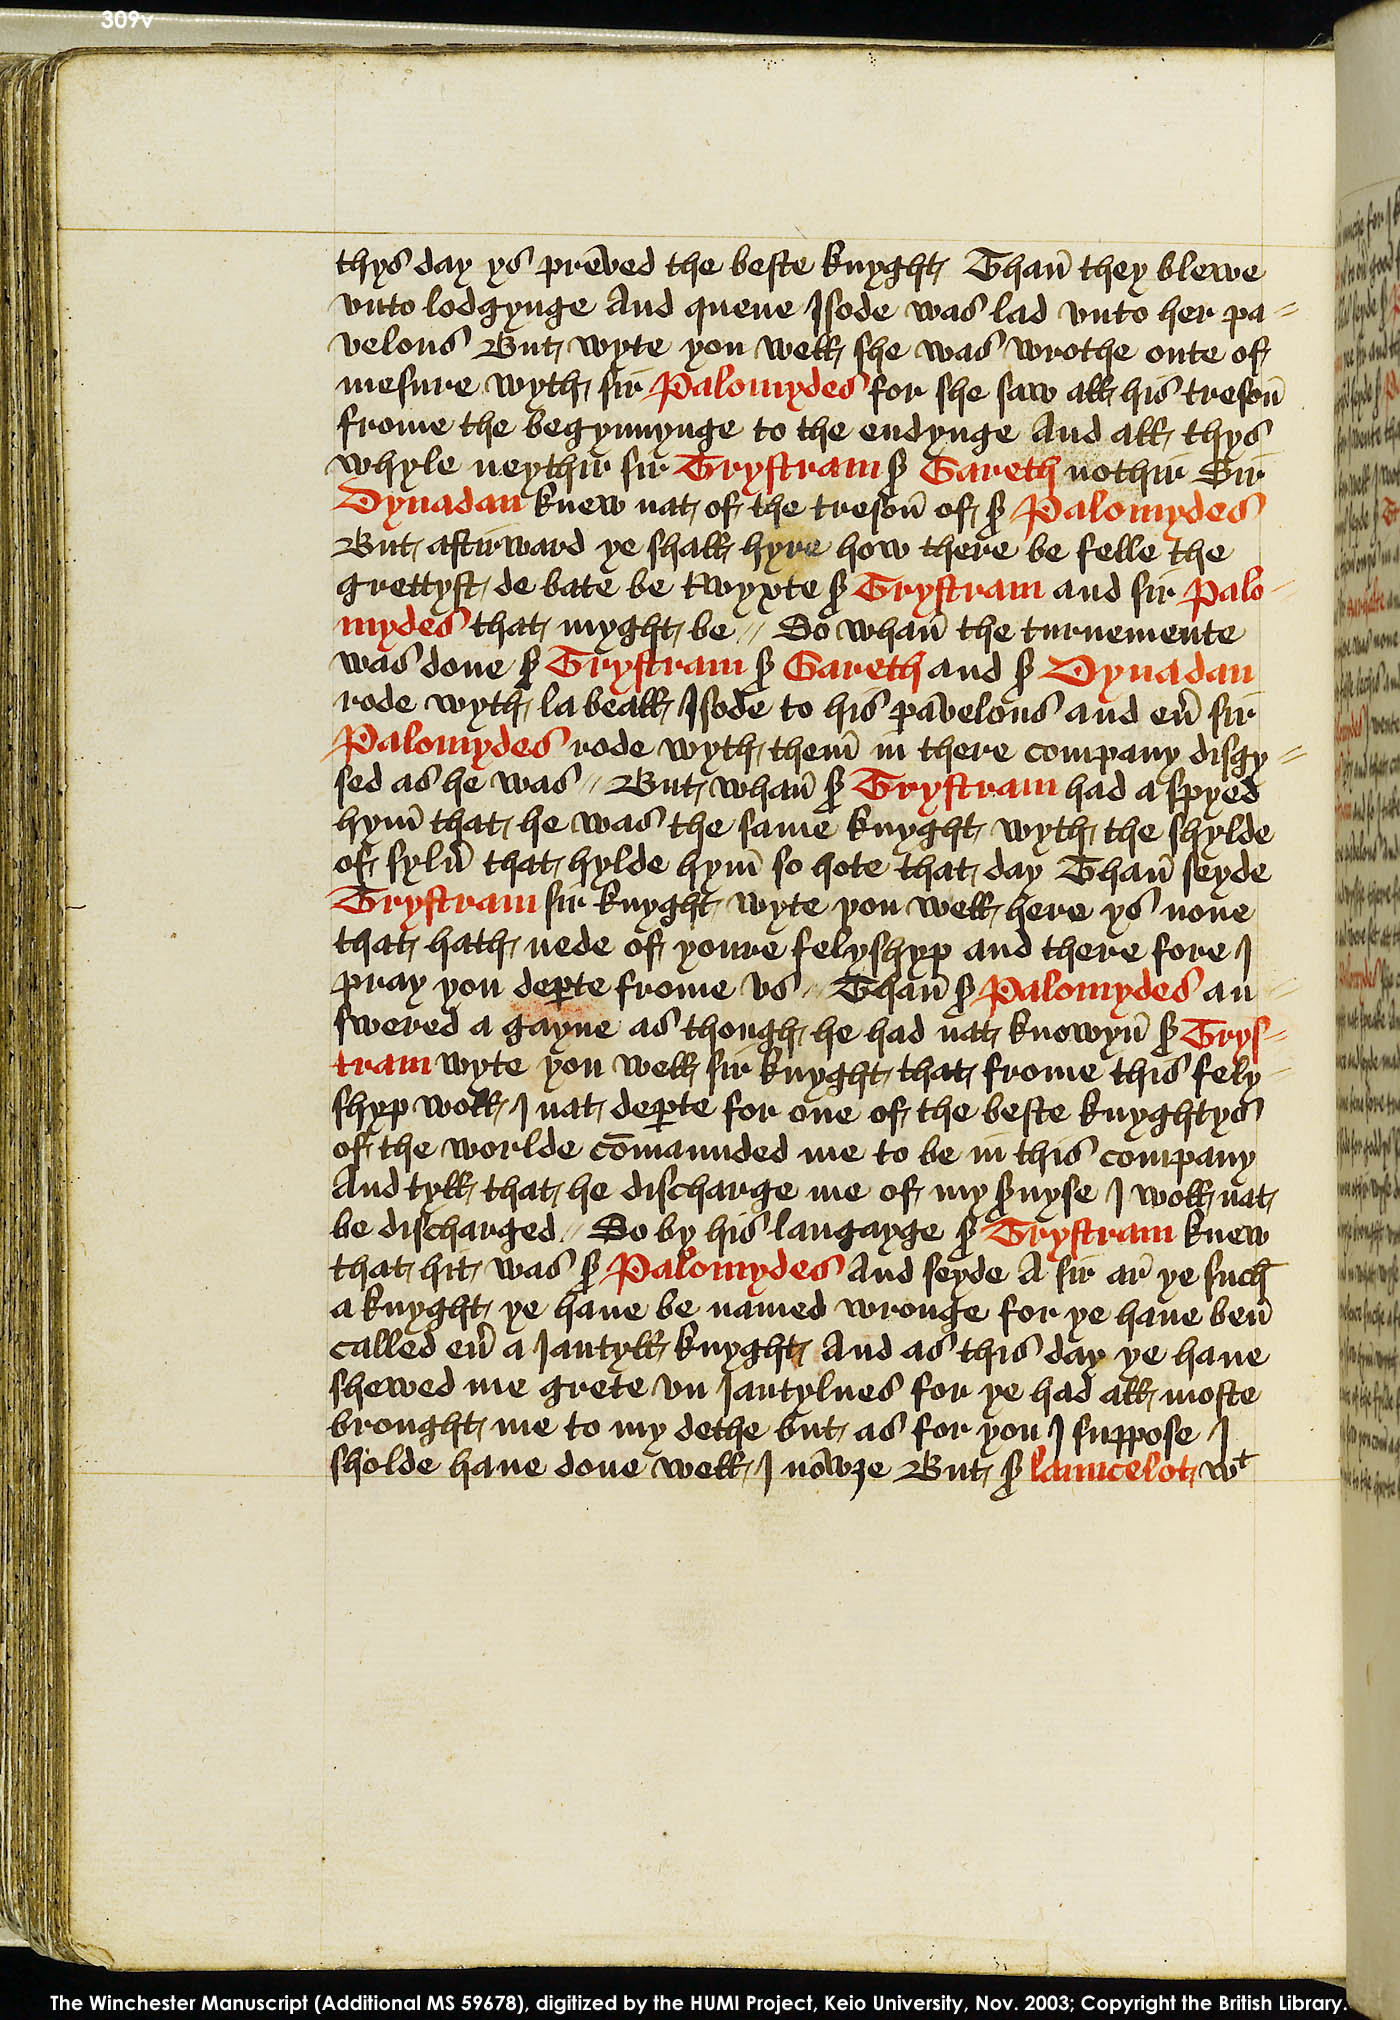 309v
thys day ys prēved the beste knyght Thān they blewe
vnto lodgynge And quene Isode was lad vnto her pa=
velons But wyte you well she was wrothe oute of
mesure wyth sir Palomydes for she saw all his tresoū
frome the begynnynge to the endynge And all thys
whyle neythir sir Trystram ẜ Gareth nothir Sir
Dynadan knew nat of the tresoū of ẜ Palomydes
But aftirward ye shall hyre how there be felle the
grettyst de bate be twyxte ẜ Trystram and sir Palo=
mydes that myght be // So whān the turnemente
was done ẜ Trystram ẜ Gareth and ẜ Dynadan
rode wyth la beall Isode to his pāvelons and eū sir
Palomydes rode wyth them̄ in there company disgy=
sed as he was // But whān ẜ Trystram had a spyed
hym̄ that he was the same knyght wyth the shylde
of sylū that hylde hym̄ so hote that day Thān seyde
Trystram sir knyght wyte you well here ys none
that hath nede of youre felyshyp and there fore I
pray you deꝑte frome vs // Thān ẜ Palomydes an=
swered a gayne as though he had nat knowyn̄ ẜ Trys=
tram wyte you well sir knyght that frome this fely=
shyp woll I nat deꝑte for one of the beste knyghtys
of the worlde cōmaunded me to be in this company
And tyll that he discharge me of my ẜuyse I woll nat
be discharged // So by his langayge ẜ Trystram knew
that hit was ẜ Palomydes And seyde A sir ar̄ ye such
a knyght ye haue be named wronge for ye haue ben̄
called eū a Jantyll knyght And as this day ye haue
shewed me grete vn Jantylnes for ye had all moste
brought me to my dethe but as for you I suppose I
sholde haue done well I nōwȝe But ẜ launcelot wᵗ
The Winchester Manuscript (Additional MS 59678), digitized by the HUMI Project, Keio University, Nov. 2003; Copyright the British Library.